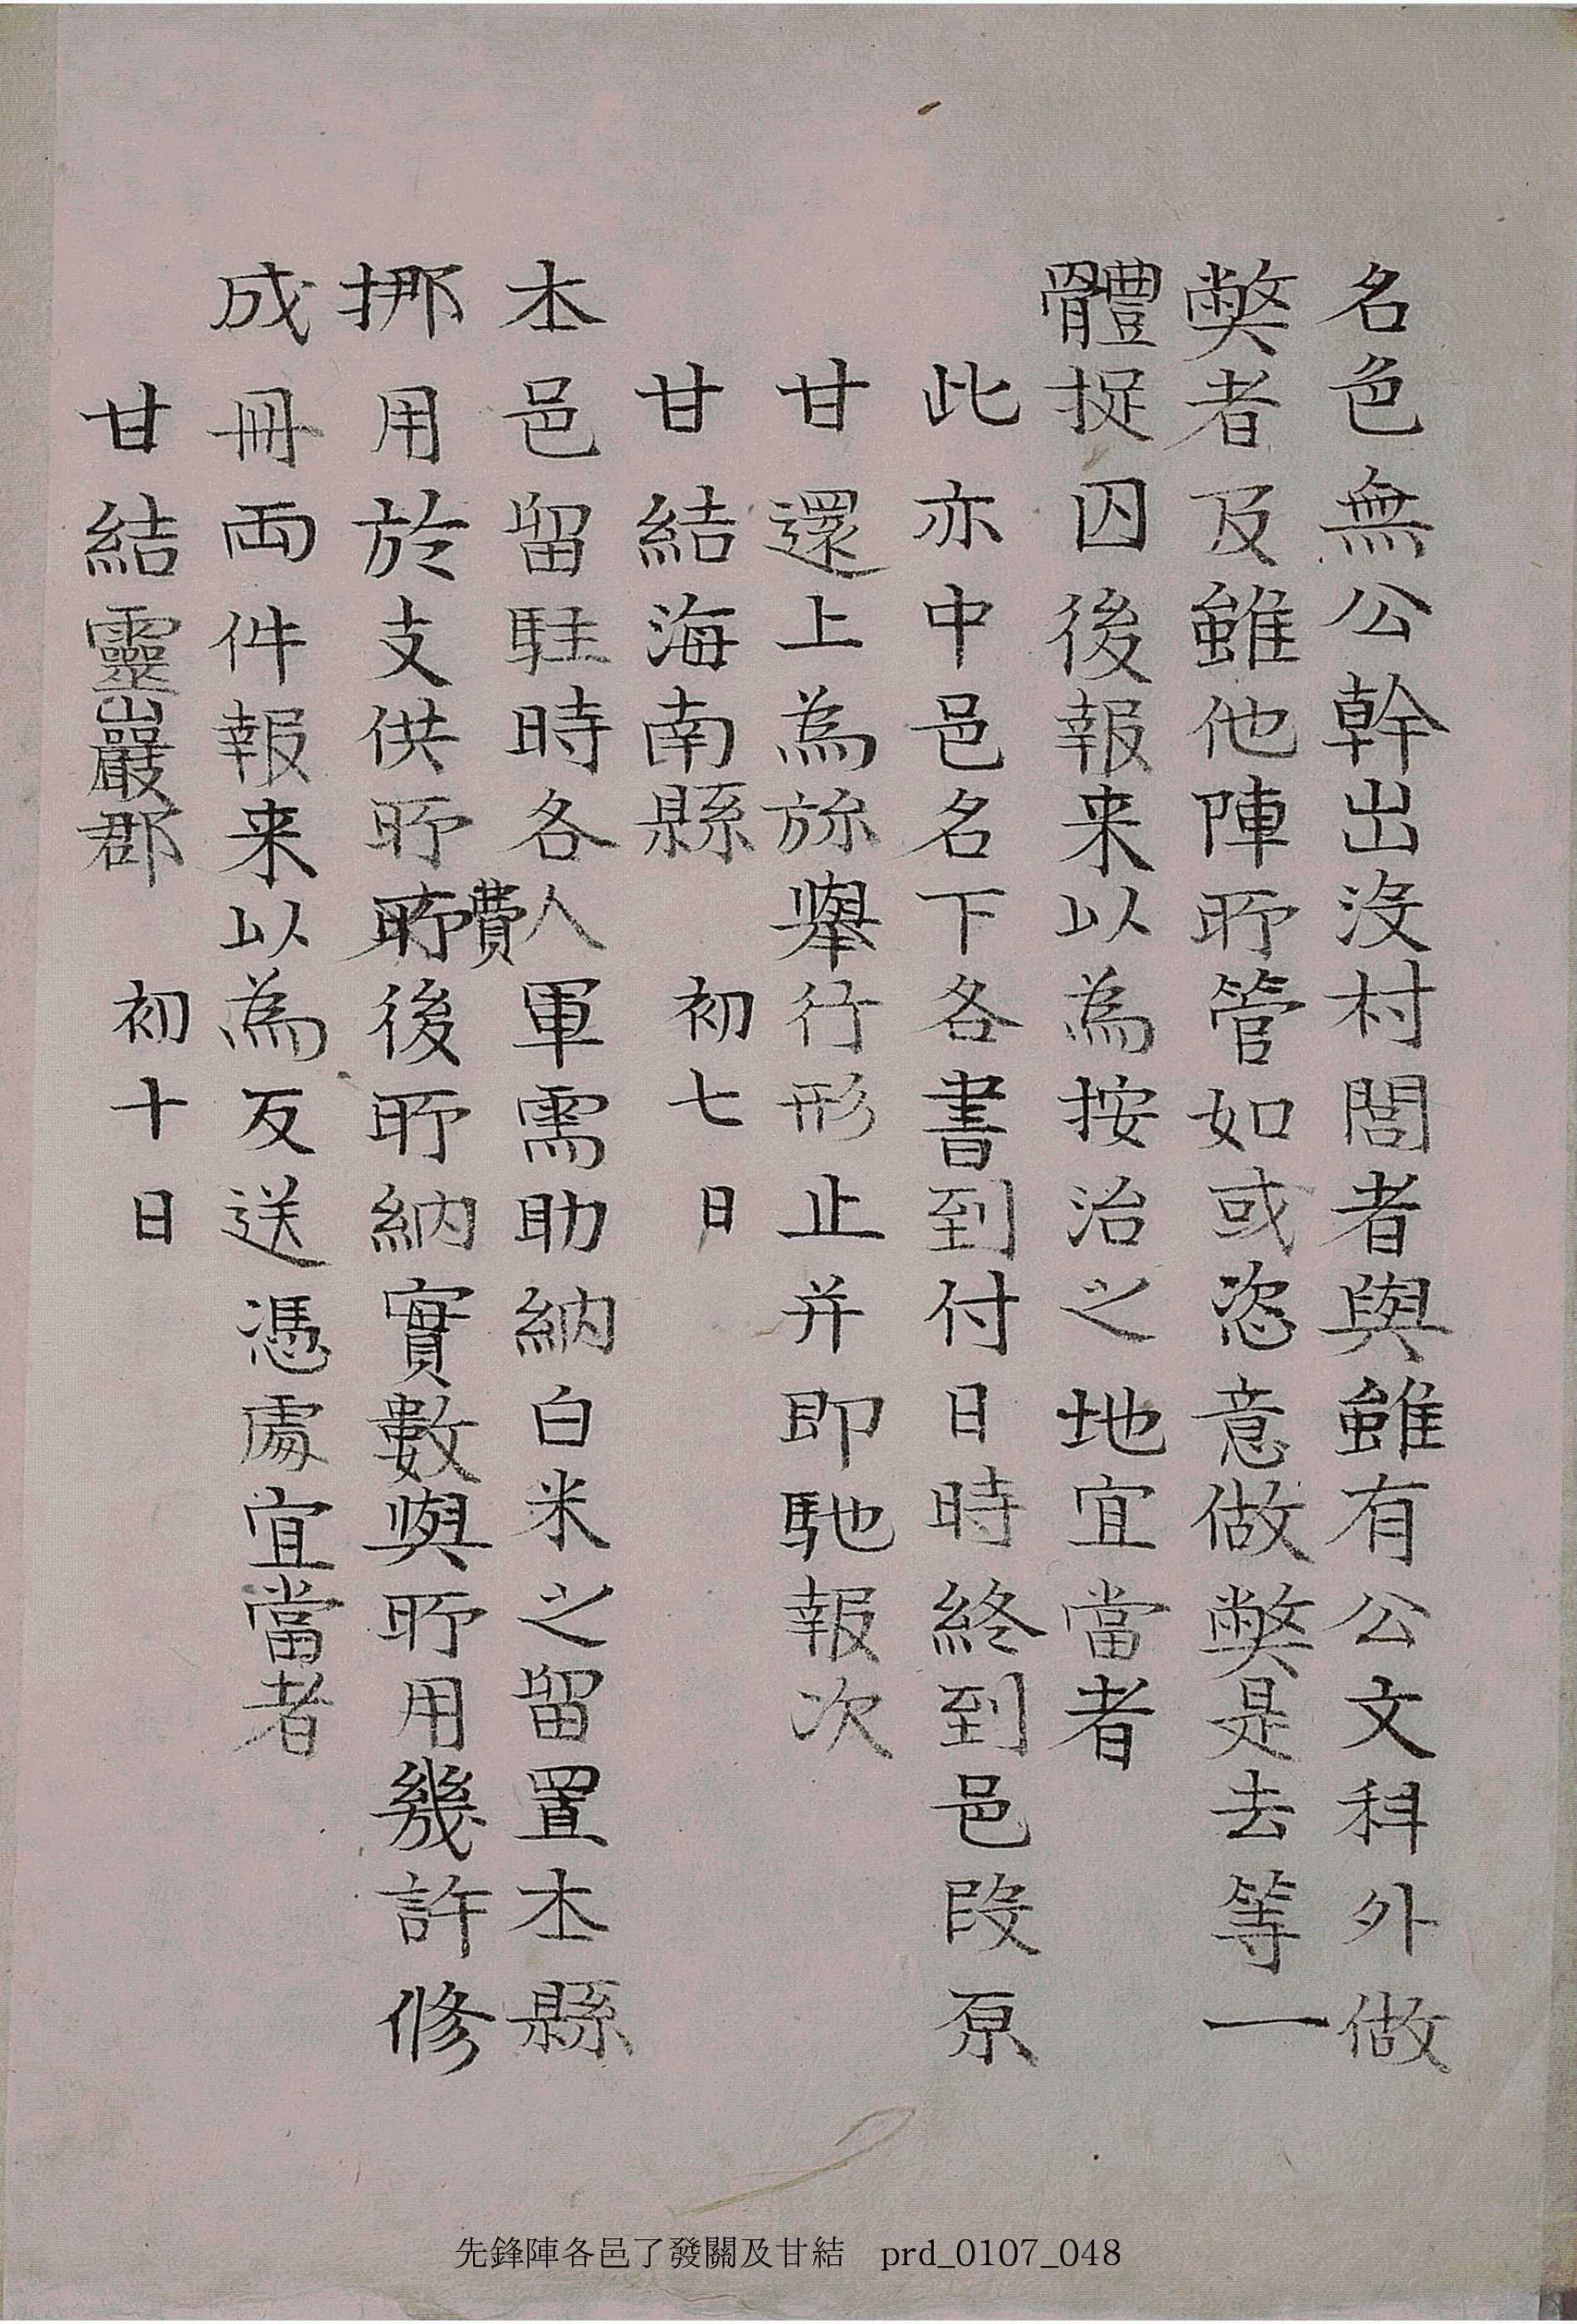 名色無公幹出没村閭者與雖有公文科外做
弊者及雖他陣所管如或恣意做弊是去等一
體捉囚後報来以為按治之地宜當者
此亦中邑名下各書到付日時終到邑段原
甘還上為旀擧行形止并即馳報次
甘結海南縣 初七日
本邑留駐時各人軍需助納白米之留置本縣
挪用於支供所費後所納實數與所用幾許修
成冊両件報来以為反送憑處宜當者
甘結靈巖郡 初十日
先鋒陣各邑了發關及甘結 prd_0107_048